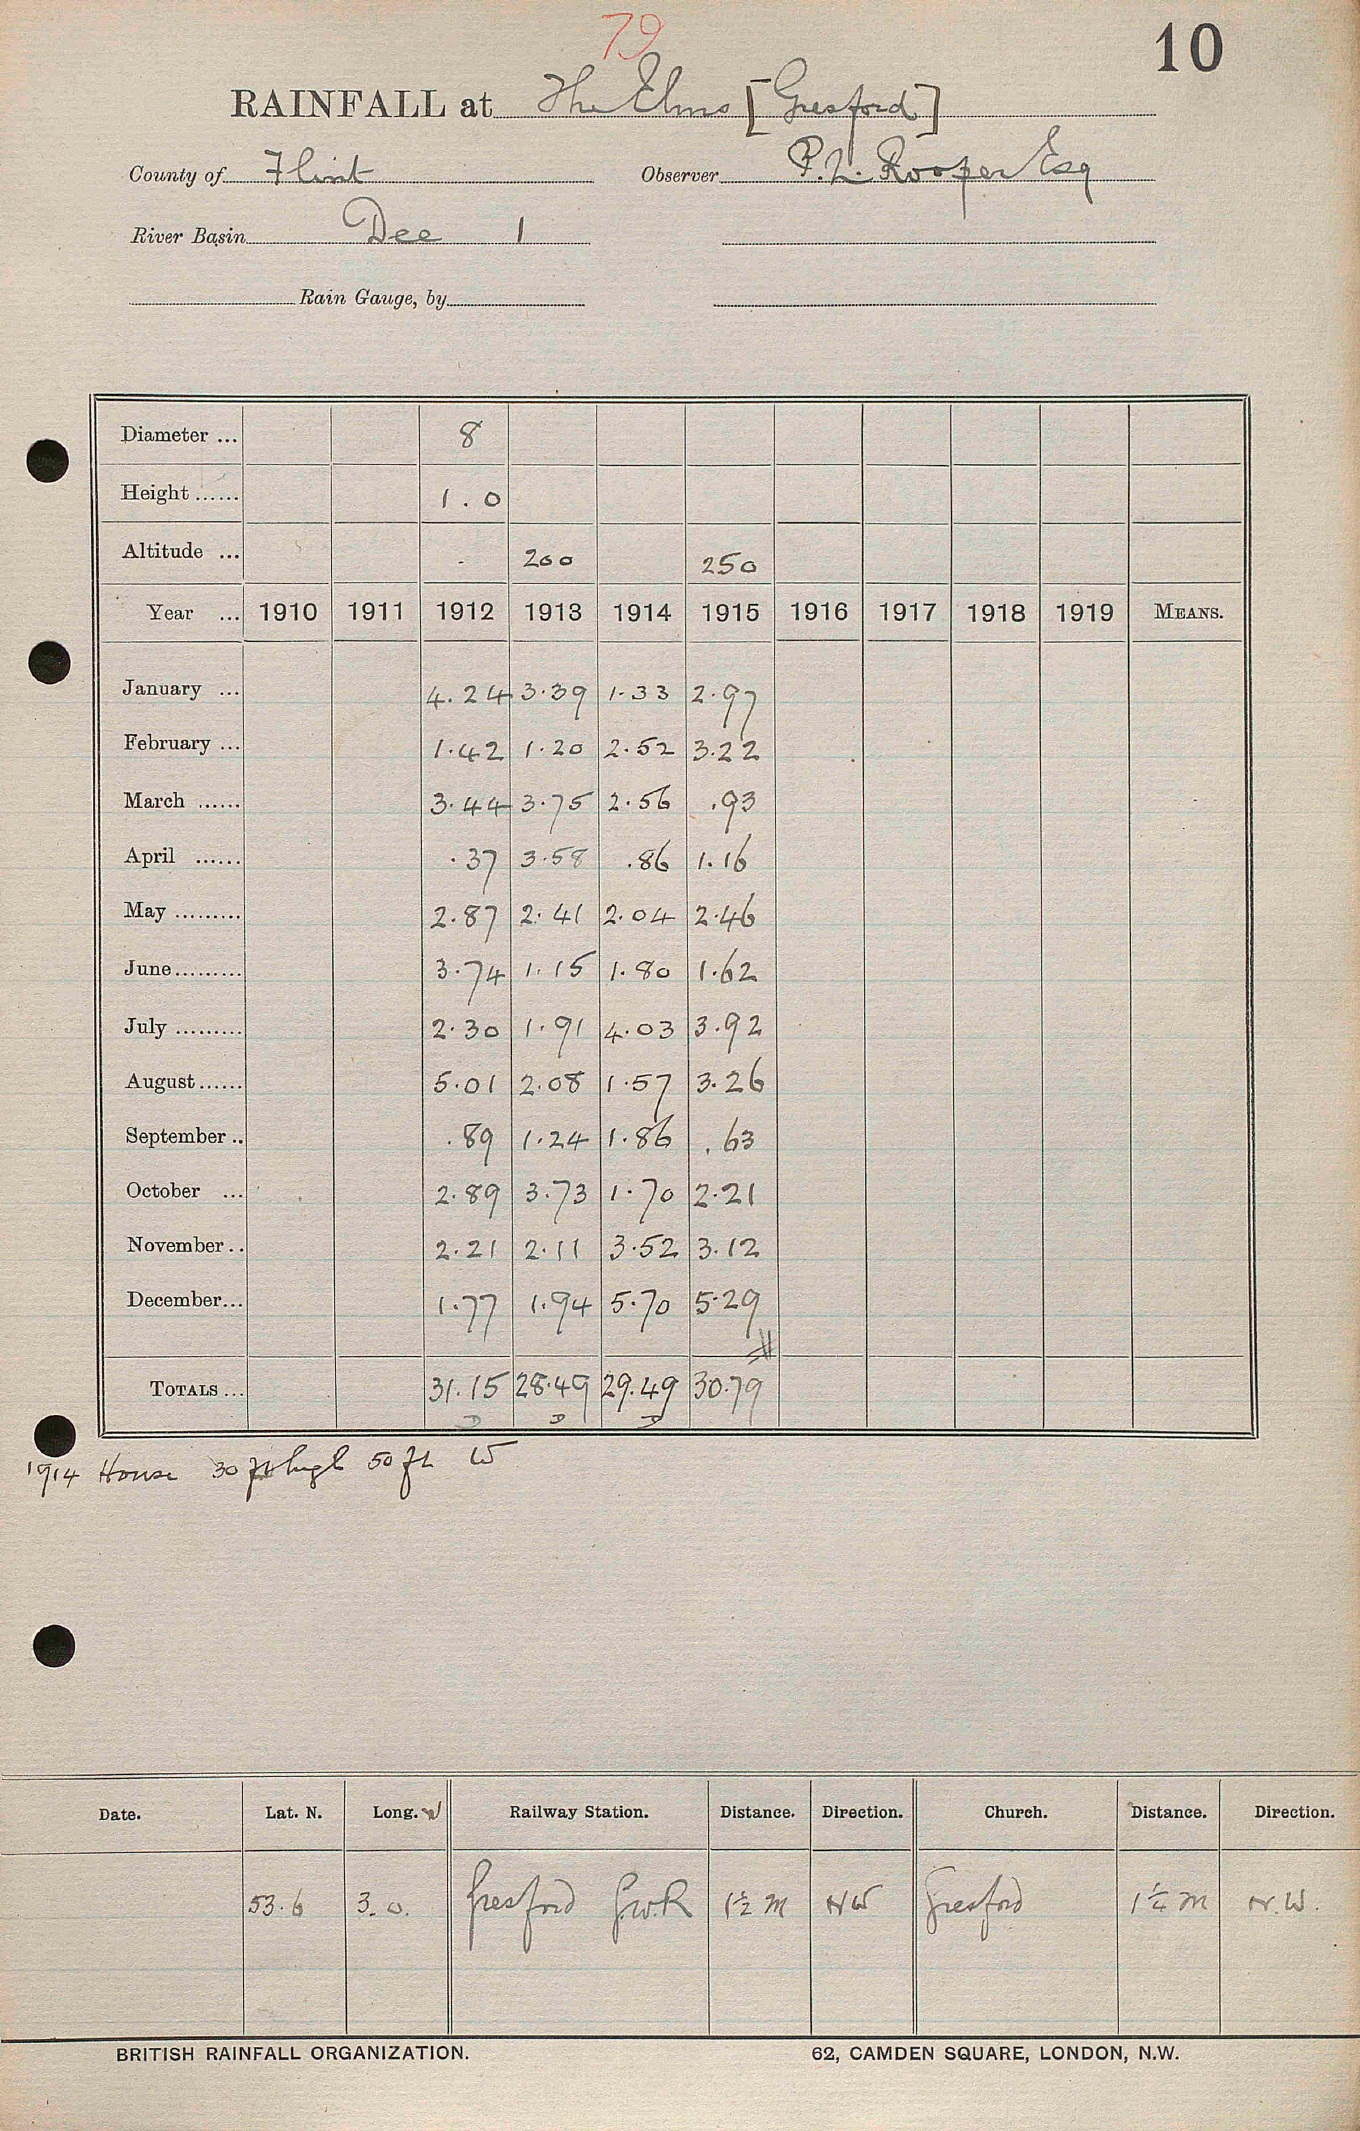 79
10
RAINFALL at The Elms [Gresford]
County of Flint Observer P. L. Rooper Esq
River Basin Dee 1
Rain Gauge, by
Diameter ... 8
Height ...... 1.0
Altitude ... 200 250
Year ... 1910 1911 1912 1913 1914 1915 1916 1917 1918 1919 MEANS.
January ... 4.24 3.39 1.33 2.97
February ... 1.42 1.20 2.52 3.22
March ...... 3.44 3.75 2.56 .93
April ...... .37 3.58 .86 1.16
May ......... 2.87 2.41 2.04 2.46
June ......... 3.74 1.15 1.80 1.62
July ......... 2.30 1.91 4.03 3.92
August ...... 5.01 2.08 1.57 3.26
September .. .89 1.24 1.86 .63
October ... 2.89 3.73 1.70 2.21
November .. 2.21 2.11 3.52 3.12
December ... 1.77 1.94 5.70 5.29
TOTALS ... 31.15 28.49 29.49 30.79
D D D
1914 House 30 ft high 50 ft W
Date. Lat. N. Long. W Railway Station. Distance. Direction. Church. Distance. Direction.
53.6 3.0. Gresford G.W.R 1½ M NW Gresford 1¼ M N.W.
BRITISH RAINFALL ORGANIZATION. 62, CAMDEN SQUARE, LONDON, N.W.